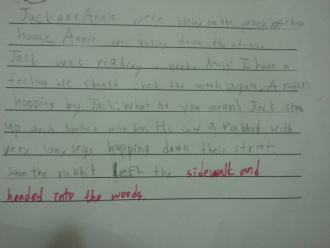 Jack and Annie were siting on the porch of their
house. Annie was looking down the street.
Jack was reading a book. Annie: I have a
feeling we should check the woods again. A rabbit
hopping by. Jack: What do you mean? Jack
up and looked with her He saw a rabbit with
very long legs hopping down their street.
Soon the rabbit left the sidewalk and
headed into the woods